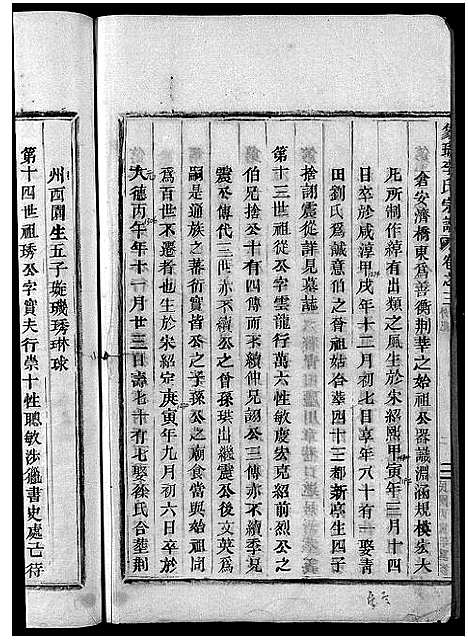 倉安濟橋東爲善衡荆華之始祖公器識淵涵規模宏大
凡所制作綽有出類之風生於宋紹熙甲寅年三月十四
日卒於咸淳甲戌年十二月初七日享年八十有一娶青
田劉氏爲誠意伯之曾祖姑合葬四十三都新亭生四子
捨詡震從詳見墓誌
第十三世祖從公字雲龍行萬六性敏慶宏克紹前烈公之
伯兄捨公十有一傳亦不續仲兄詡公三傳亦不續季兄
震公傳代三世亦不續公之曾孫珙出繼震公後文英爲
嗣是通族之蕃衍實皆公之子孫公之廟食當與始祖同
爲百世不遷者也生於宋紹定庚寅年九月初六日卒於
大德丙午年十一月廿三日壽七十有七娶徐氏合葬荆
州西園生五子璇璣琇琳球
第十四世祖琇公字實夫行崇十性聰敏涉獵書史處己待